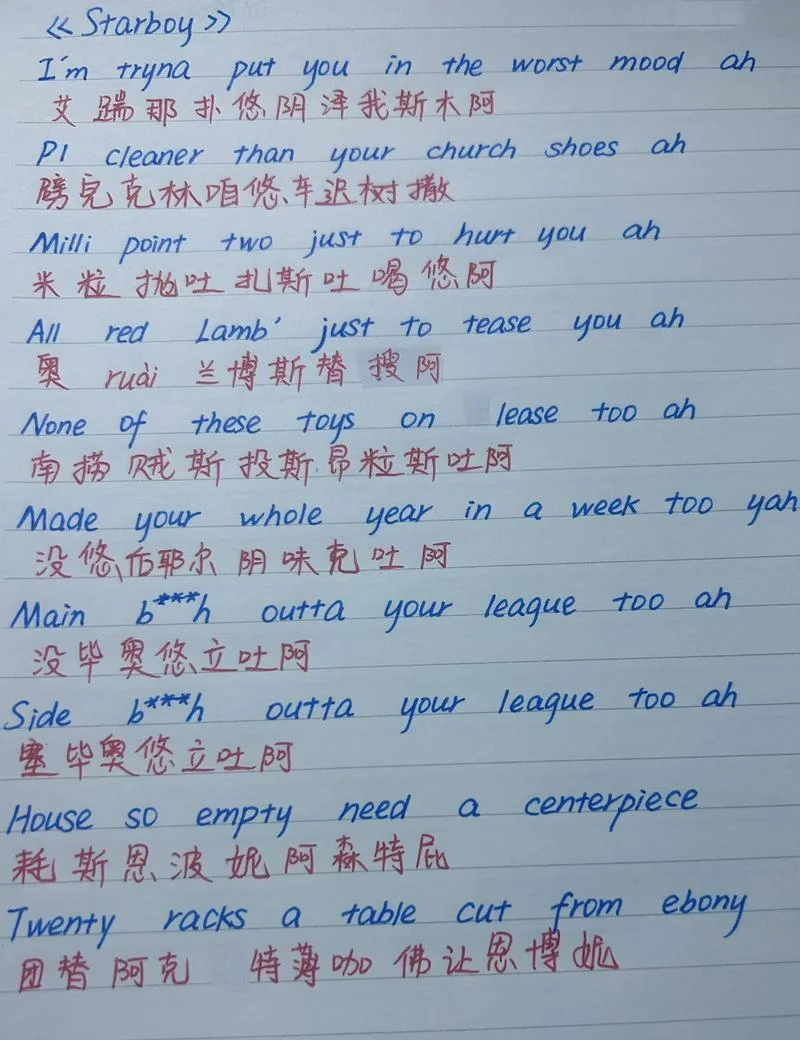 《Starboy》
I'm tryna put you in the worst mood ah
艾踹那扑悠阴泽我斯木阿
P1 cleaner than your church shoes ah
劈克林咱悠车迟树撒
Milli point two just to hurt you ah
米粒抛吐扎斯吐喝悠阿
All red Lamb' just to tease you ah
奥 ruài 兰博斯替搜阿
None of these toys on lease too ah
南捞贼斯投斯昂粒斯吐阿
Made your whole year in a week too yah
没悠后耶尔阴味克吐阿
Main b***h outta your league too ah
没毕奥悠立吐阿
Side b***h outta your league too ah
塞毕奥悠立吐阿
House so empty need a centerpiece
耗斯恩波妮阿森特屁
Twenty racks a table cut from ebony
团替阿克 特薄咖佛让恩博妮